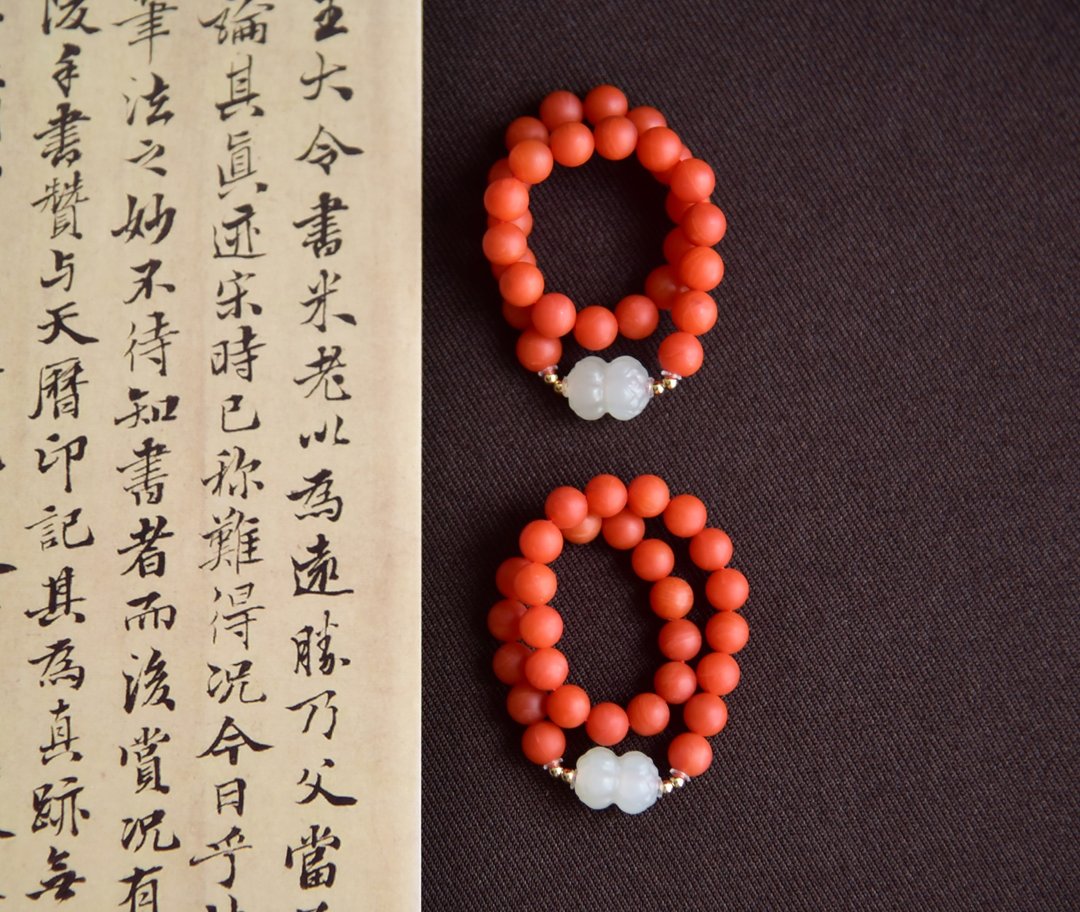 王大令書米老以為遠勝乃父當
論其眞迹宋時已称難得况今日乎
筆法之妙不待知書者而後賞况有
後手書贊与天曆印記其為真跡無